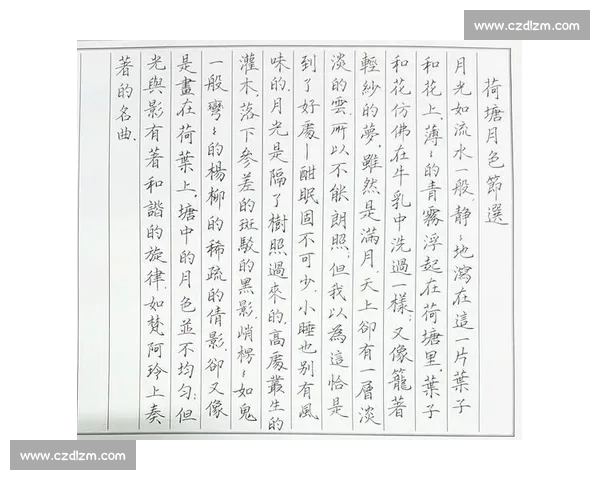 www.czdlzm.com
荷塘月色節選
月光如流水一般,靜〻地瀉在這一片葉子
和花上,薄〻的青霧浮起在荷塘里,葉子
和花仿佛在牛乳中洗過一樣;又像籠著
輕紗的夢,雖然是滿月,天上卻有一層淡
淡的雲,所以不能朗照;但我以為這恰是
到了好處—酣眠固不可少,小睡也別有風
味的,月光是隔了樹照過來的,高處叢生的
灌木,落下參差的斑駁的黑影,峭楞〻如鬼
一般彎〻的楊柳的稀疏的倩影,卻又像
是畫在荷葉上,塘中的月色並不均勻;但
光與影有著和諧的旋律,如梵阿玲上奏
著的名曲.
www.czdlzm.com